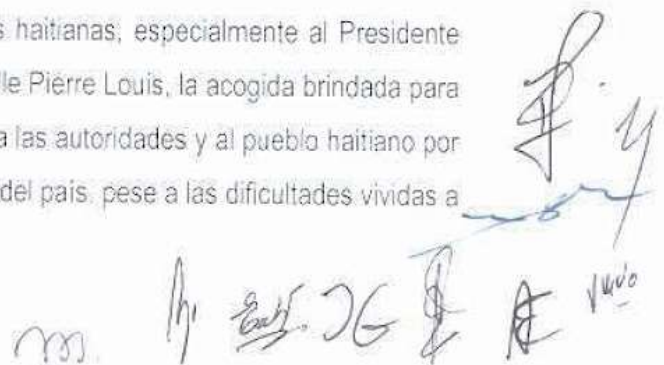 s haitianas, especialmente al Presidente
le Pierre Louis, la acogida brindada para
a las autoridades y al pueblo haitiano por
del país, pese a las dificultades vividas a